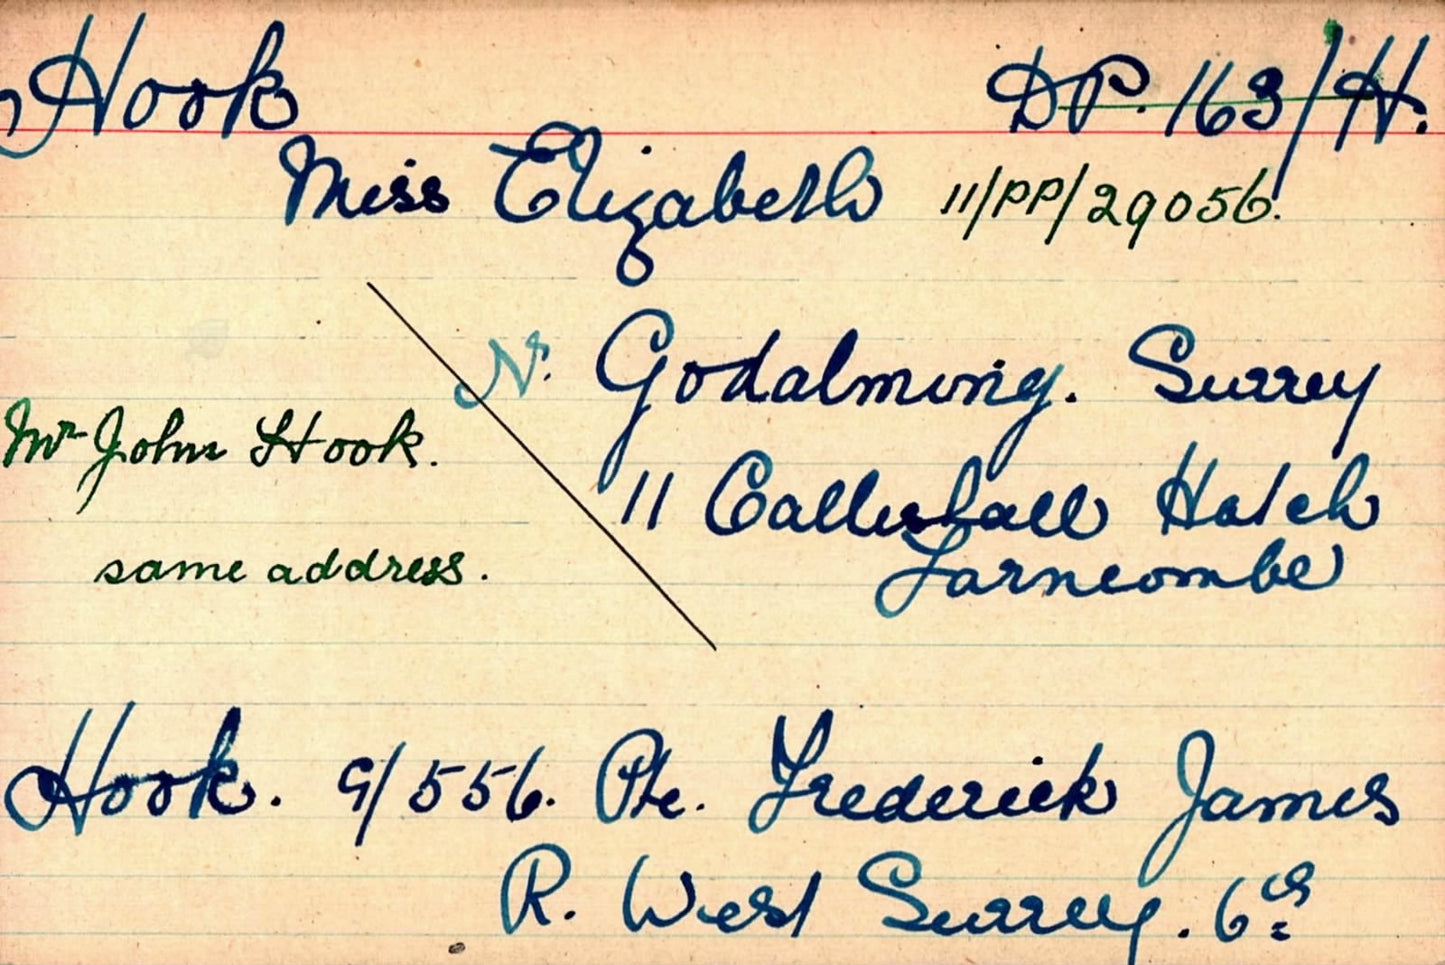 Hook DP. 163/H.
Miss Elizabeth 11/PP/29056.
Nr. Godalming. Surrey
Mr John Hook.
11 Catteshall Hatch
Farncombe
same address.
Hook. G/556. Pte. Frederick James
R. West Surrey. 6th